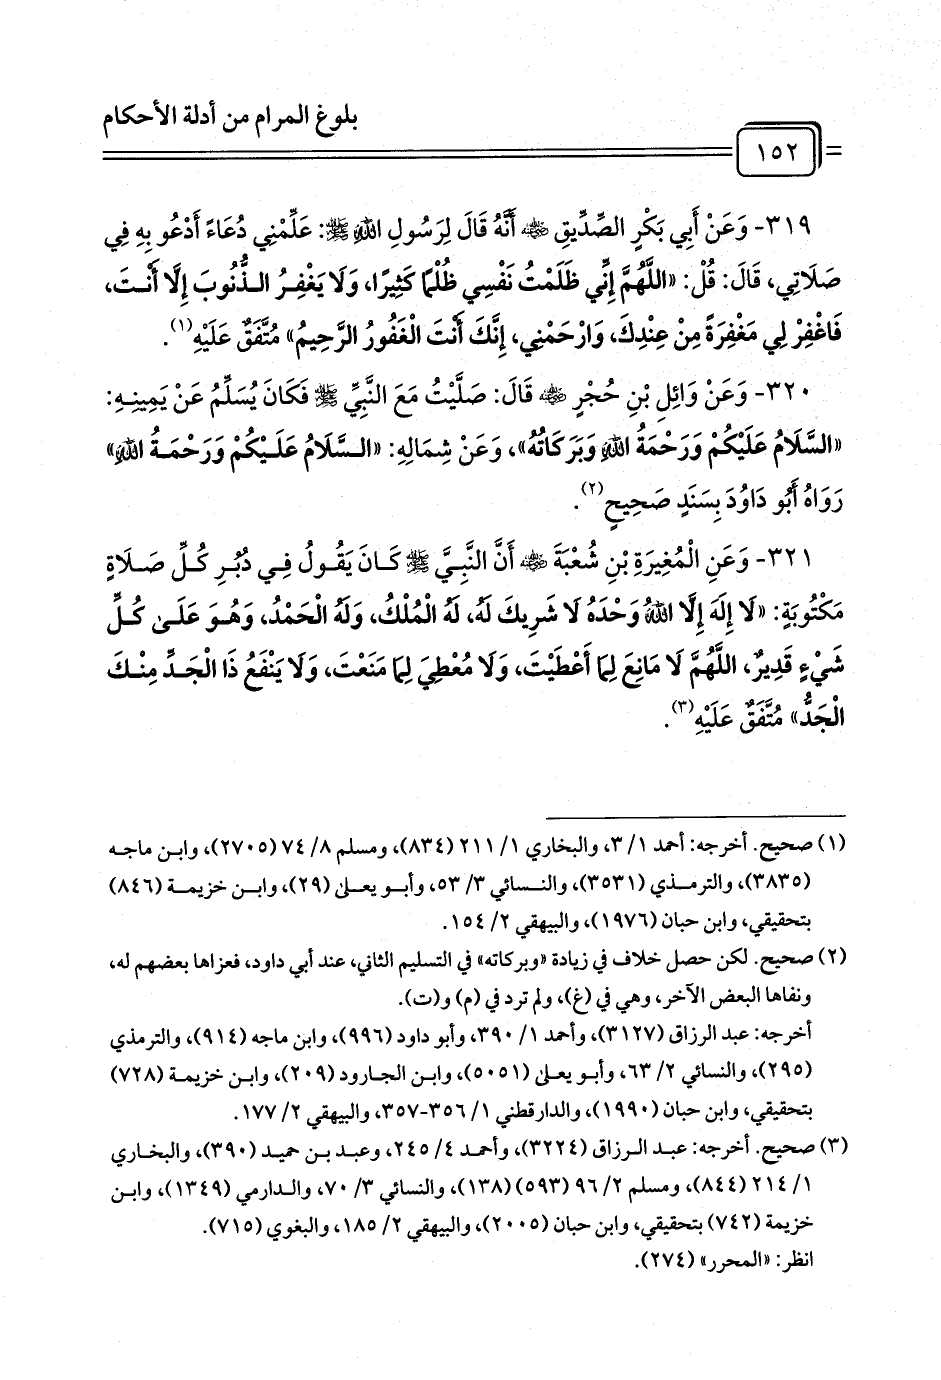 بلوغ المرام من أدلة الأحكام
١٥٢
٣١٩- وَعَنْ أَبِي بَكْرٍ الصِّدِّيقِ ﵁ أَنَّهُ قَالَ لِرَسُولِ اللهِ ﷺ: عَلِّمْنِي دُعَاءً أَدْعُو بِهِ فِي
صَلَاتِي، قَالَ: قُلْ: «اللَّهُمَّ إِنِّي ظَلَمْتُ نَفْسِي ظُلْمًا كَثِيرًا، وَلَا يَغْفِرُ الذُّنُوبَ إِلَّا أَنْتَ،
فَاغْفِرْ لِي مَغْفِرَةً مِنْ عِنْدِكَ، وَارْحَمْنِي، إِنَّكَ أَنْتَ الْغَفُورُ الرَّحِيمُ» مُتَّفَقٌ عَلَيْهِ(١).
٣٢٠- وَعَنْ وَائِلِ بْنِ حُجْرٍ ﵁ قَالَ: صَلَّيْتُ مَعَ النَّبِيِّ ﷺ فَكَانَ يُسَلِّمُ عَنْ يَمِينِهِ:
«السَّلَامُ عَلَيْكُمْ وَرَحْمَةُ اللهِ وَبَرَكَاتُهُ»، وَعَنْ شِمَالِهِ: «السَّلَامُ عَلَيْكُمْ وَرَحْمَةُ اللهِ»
رَوَاهُ أَبُو دَاوُدَ بِسَنَدٍ صَحِيحٍ(٢).
٣٢١- وَعَنِ الْمُغِيرَةِ بْنِ شُعْبَةَ ﵁ أَنَّ النَّبِيَّ ﷺ كَانَ يَقُولُ فِي دُبُرِ كُلِّ صَلَاةٍ
مَكْتُوبَةٍ: «لَا إِلَهَ إِلَّا اللهُ وَحْدَهُ لَا شَرِيكَ لَهُ، لَهُ الْمُلْكُ، وَلَهُ الْحَمْدُ، وَهُوَ عَلَى كُلِّ
شَيْءٍ قَدِيرٌ، اللَّهُمَّ لَا مَانِعَ لِمَا أَعْطَيْتَ، وَلَا مُعْطِيَ لِمَا مَنَعْتَ، وَلَا يَنْفَعُ ذَا الْجَدِّ مِنْكَ
الْجَدُّ» مُتَّفَقٌ عَلَيْهِ(٣).
(١) صحيح. أخرجه: أحمد ١/ ٣، والبخاري ١/ ٢١١ (٨٣٤)، ومسلم ٨/ ٧٤ (٢٧٠٥)، وابن ماجه
(٣٨٣٥)، والترمذي (٣٥٣١)، والنسائي ٣/ ٥٣، وأبو يعلى (٢٩)، وابن خزيمة (٨٤٦)
بتحقيقي، وابن حبان (١٩٧٦)، والبيهقي ٢/ ١٥٤.
(٢) صحيح. لكن حصل خلاف في زيادة «وبركاته» في التسليم الثاني، عند أبي داود، فعزاها بعضهم له،
ونفاها البعض الآخر، وهي في (غ)، ولم ترد في (م) و(ت).
أخرجه: عبد الرزاق (٣١٢٧)، وأحمد ١/ ٣٩٠، وأبو داود (٩٩٦)، وابن ماجه (٩١٤)، والترمذي
(٢٩٥)، والنسائي ٢/ ٦٣، وأبو يعلى (٥٠٥١)، وابن الجارود (٢٠٩)، وابن خزيمة (٧٢٨)
بتحقيقي، وابن حبان (١٩٩٠)، والدارقطني ١/ ٣٥٦-٣٥٧، والبيهقي ٢/ ١٧٧.
(٣) صحيح. أخرجه: عبد الرزاق (٣٢٢٤)، وأحمد ٤/ ٢٤٥، وعبد بن حميد (٣٩٠)، والبخاري
١/ ٢١٤ (٨٤٤)، ومسلم ٢/ ٩٦ (٥٩٣) (١٣٨)، والنسائي ٣/ ٧٠، والدارمي (١٣٤٩)، وابن
خزيمة (٧٤٢) بتحقيقي، وابن حبان (٢٠٠٥)، والبيهقي ٢/ ١٨٥، والبغوي (٧١٥).
انظر: «المحرر» (٢٧٤).